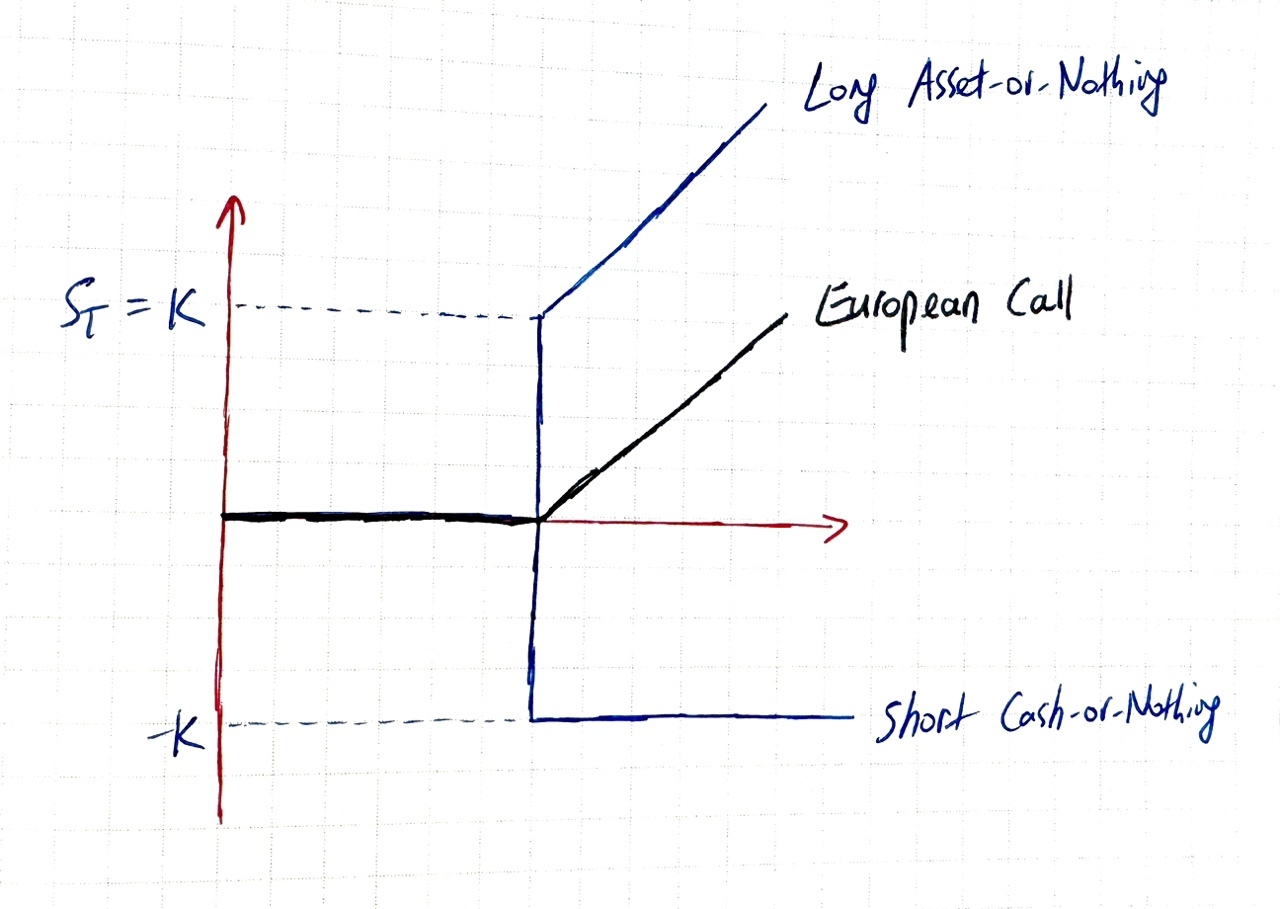 Long Asset-or-Nothing
S_T = K
European Call
-K
Short Cash-or-Nothing